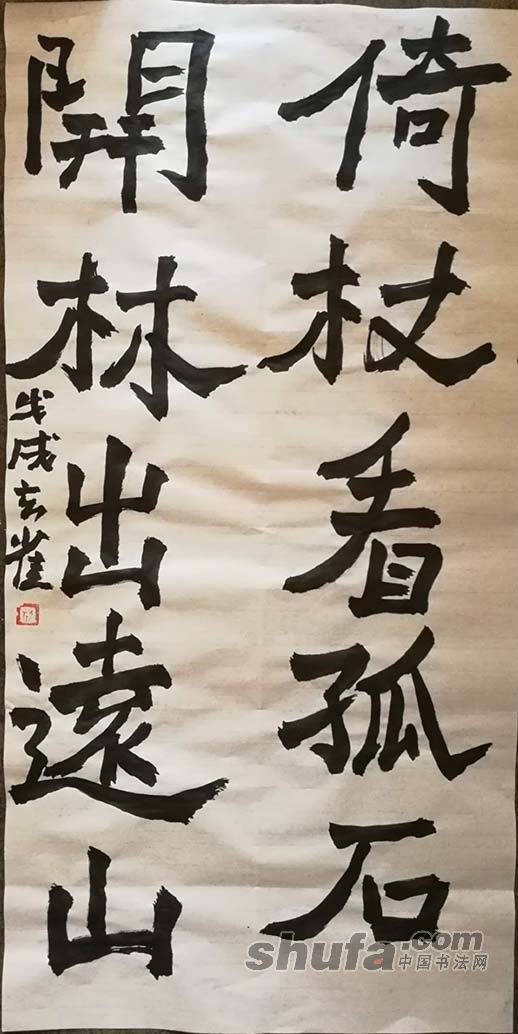 倚杖看孤石
開林出遠山
戊戌玄雀
shufa.com
中国书法网